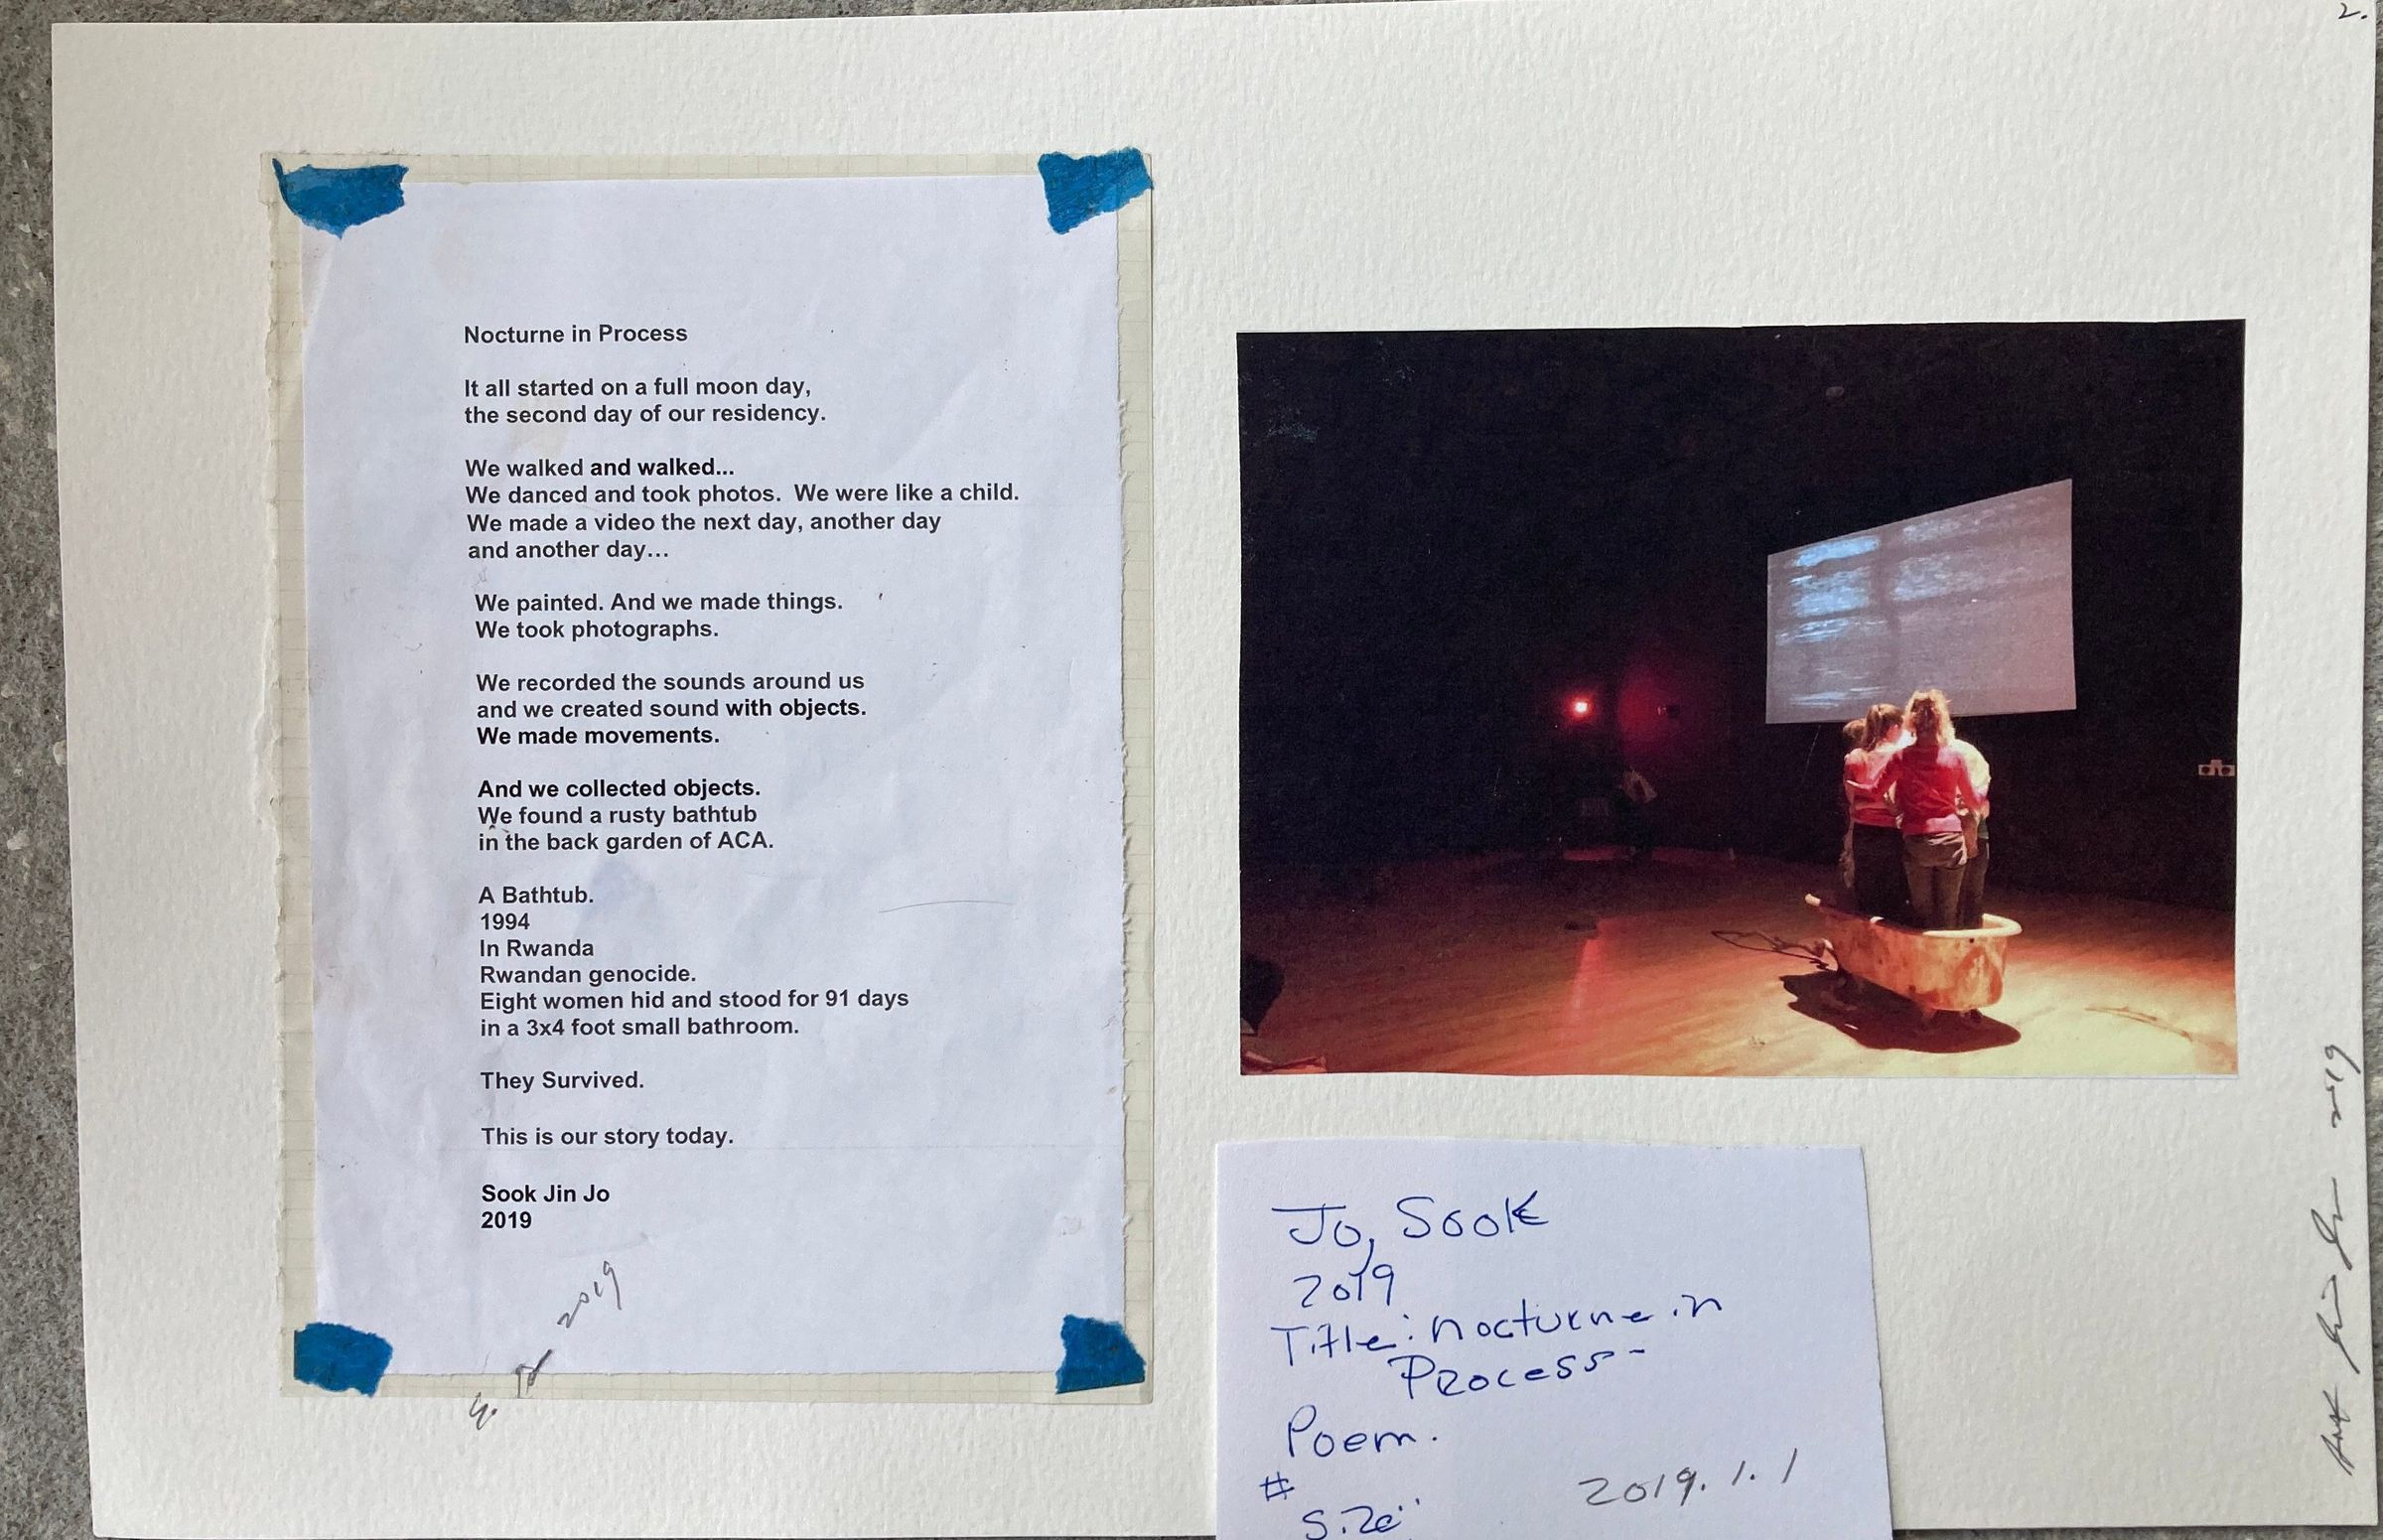 2.
Nocturne in Process
It all started on a full moon day,
the second day of our residency.
We walked and walked...
We danced and took photos.  We were like a child.
We made a video the next day, another day
and another day...
We painted. And we made things.
We took photographs.
We recorded the sounds around us
and we created sound with objects.
We made movements.
And we collected objects.
We found a rusty bathtub
in the back garden of ACA.
A Bathtub.
1994
In Rwanda
Rwandan genocide.
Eight women hid and stood for 91 days
in a 3x4 foot small bathroom.
They Survived.
This is our story today.
Sook Jin Jo
2019
2019
Jo, Sook
2019
Title: nocturne in
Process-
Poem.
#
2019.1.1
Size"
Sook Jin Jo 2019